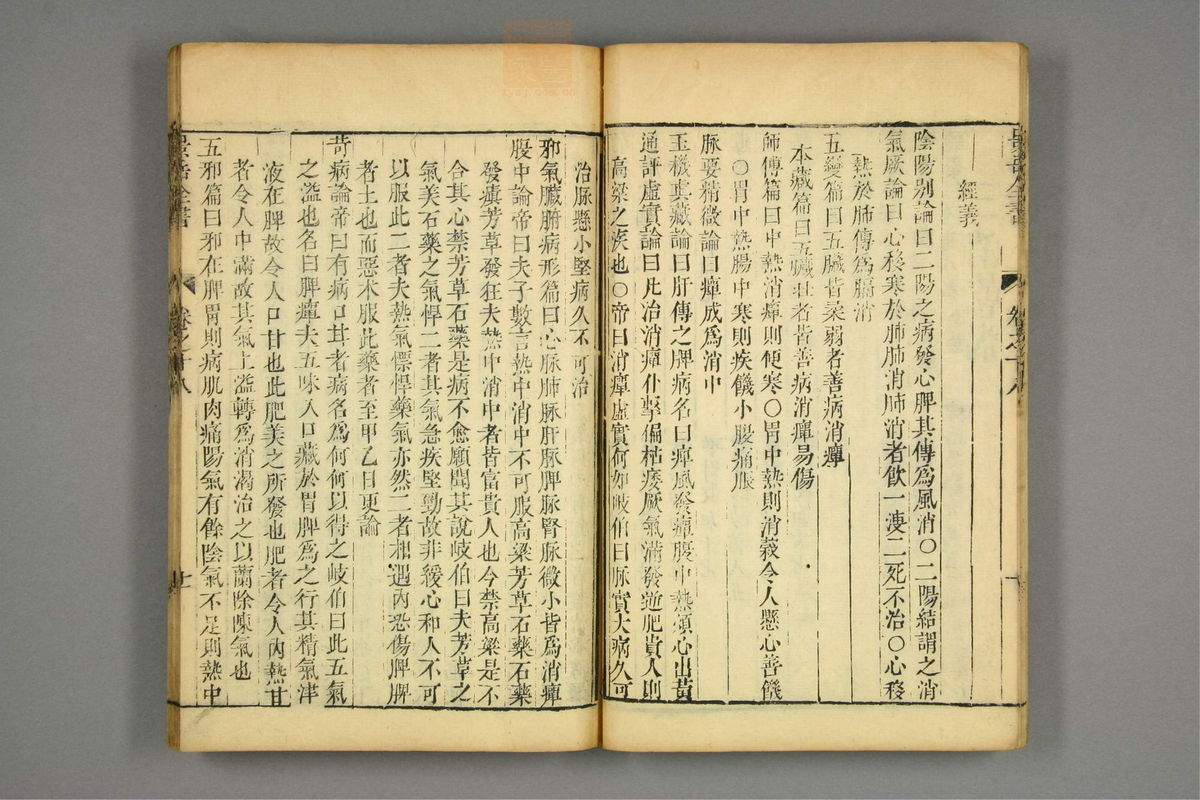 景岳全書
卷之十八
十
經義
陰陽別論曰二陽之病發心脾其傳爲風消○二陽結謂之消
氣厥論曰心移寒於肺肺消肺消者飲一溲二死不治○心移
熱於肺傳爲膈消
五變篇曰五臟皆柔弱者善病消癉
本藏篇曰五臟壯者皆善病消癉易傷
師傳篇曰中熱消癉則便寒○胃中熱則消穀令人懸心善饑
○胃中熱腸中寒則疾饑小腹痛脹
脉要精微論曰癉成爲消中
玉機真藏論曰肝傳之脾病名曰痺風發癉腹中熱煩心出黄
通評虛實論曰凡治消癉仆擊偏枯痿厥氣滿發逆肥貴人則
高梁之疾也○帝曰消癉虛實何如岐伯曰脉實大病久可
治脉懸小堅病久不可治
邪氣臟腑病形篇曰心脉肺脉肝脉脾脉腎脉微小皆爲消癉
腹中論帝曰夫子數言熱中消中不可服高梁芳草石藥石藥
發癲芳草發狂夫熱中消中者皆富貴人也今禁高梁是不
合其心禁芳草石藥是病不愈願聞其說岐伯曰夫芳草之
氣美石藥之氣悍二者其氣急疾堅勁故非緩心和人不可
以服此二者夫熱氣慓悍藥氣亦然二者相遇內恐傷脾脾
者土也而惡木服此藥者至甲乙日更論
奇病論帝曰有病口甘者病名爲何何以得之岐伯曰此五氣
之溢也名曰脾癉夫五味入口藏於胃脾爲之行其精氣津
液在脾故令人口甘也此肥美之所發也肥者令人內熱甘
者令人中滿故其氣上溢轉爲消渴治之以蘭除陳氣也
五邪篇曰邪在脾胃則病肌肉痛陽氣有餘陰氣不足則熱中
景岳全書
卷之十八
十一